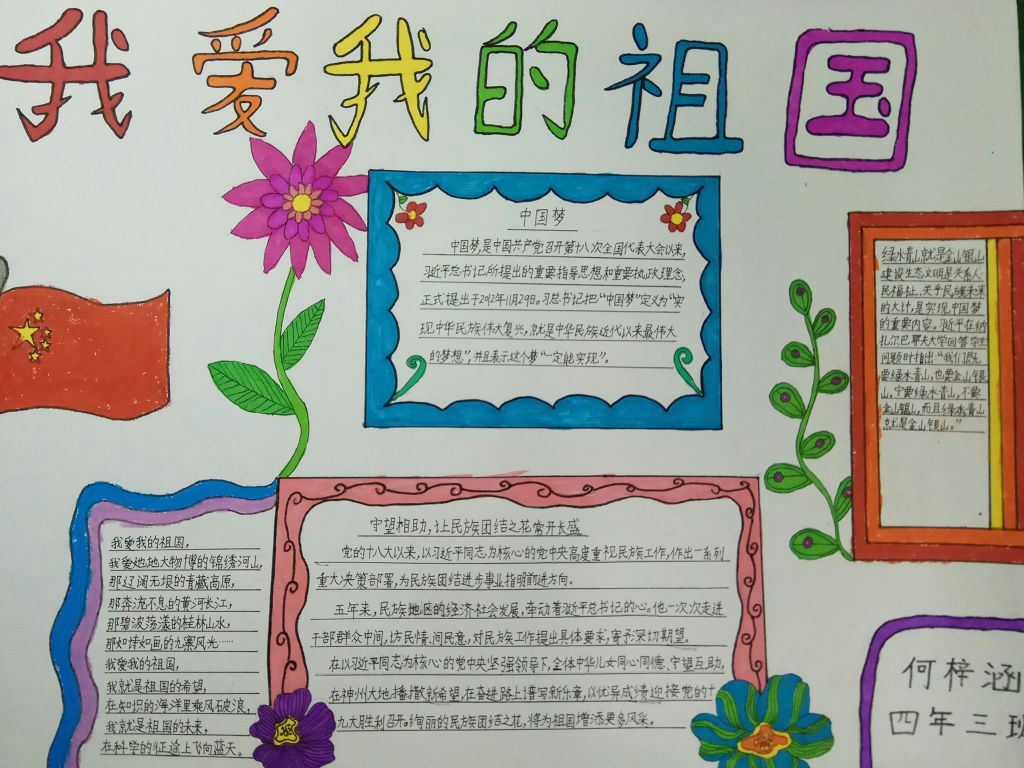 我爱我的祖国
中国梦
中国梦,是中国共产党召开第十八次全国代表大会以来,
习近平总书记所提出的重要指导思想和重要执政理念,
正式提出于2012年11月29日。习总书记把“中国梦”定义为“实
现中华民族伟大复兴,就是中华民族近代以来最伟大
的梦想”,并且表示这个梦“一定能实现”。
绿水青山就是金山银山
建设生态文明是关系人
民福祉、关乎民族未来
的大计,是实现中国梦
的重要内容。习近平在纳
扎尔巴耶夫大学回答学生
问题时指出:“我们既
要绿水青山,也要金山银
山。宁要绿水青山,不要
金山银山,而且绿水青山
就是金山银山。”
我爱我的祖国,
我爱她地大物博的锦绣河山,
那辽阔无垠的青藏高原,
那奔流不息的黄河长江,
那碧波荡漾的桂林山水,
那如诗如画的九寨风光……
我爱我的祖国,
我就是祖国的希望,
在知识的海洋里乘风破浪,
我就是祖国的未来,
在科学的征途上飞向蓝天。
守望相助,让民族团结之花常开长盛
党的十八大以来,以习近平同志为核心的党中央高度重视民族工作,作出一系列
重大决策部署,为民族团结进步事业指明前进方向。
五年来,民族地区的经济社会发展,牵动着习近平总书记的心。他一次次走进
干部群众中间,访民情、问民意,对民族工作提出具体要求,寄予深切期望。
在以习近平同志为核心的党中央坚强领导下,全体中华儿女同心同德、守望互助,
在神州大地播撒新希望,在奋进路上谱写新乐章,以优异成绩迎接党的十
九大胜利召开。绚丽的民族团结之花,将为祖国增添更多风采。
何梓涵
四年三班